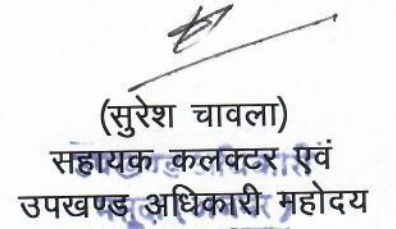 (सुरेश चावला)
सहायक कलक्टर एवं
उपखण्ड अधिकारी महोदय